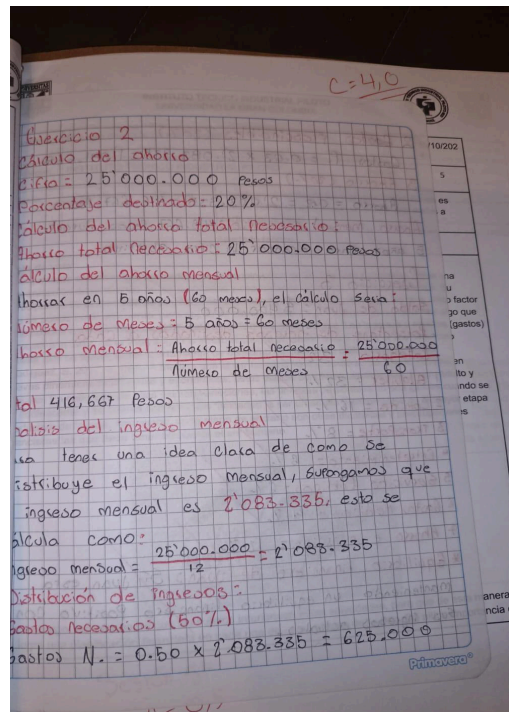 C=4,0
Ejercicio 2
Cálculo del ahorro
cifra = 25'000.000 Pesos
Porcentaje destinado = 20%
Calculo del ahorro total necesario:
Ahorro total necesario: 25'000.000 Pesos
álculo del ahorro mensual
horrar en 5 años (60 meses), el cálculo seria:
número de meses = 5 años = 60 meses
horro mensual = Ahorro total necesario = 25'000.000
número de meses 60
tal 416,667 Pesos
del ingreso mensual
tener una idea clara de como se
istribuye el ingreso mensual, supongamos que
ingreso mensual es 2'083.335, esto se
álcula como:
ngreso mensual = 25'000.000 = 2'083.335
12
Distribución de ingresos:
Gastos necesarios (50%)
Gastos N. = 0.50 x 2'083.335 = 625.000
Primavera
/10/202
5
es
a
na
u
o factor
go que
(gastos)
en
ito y
indo se
etapa
anera
ncia